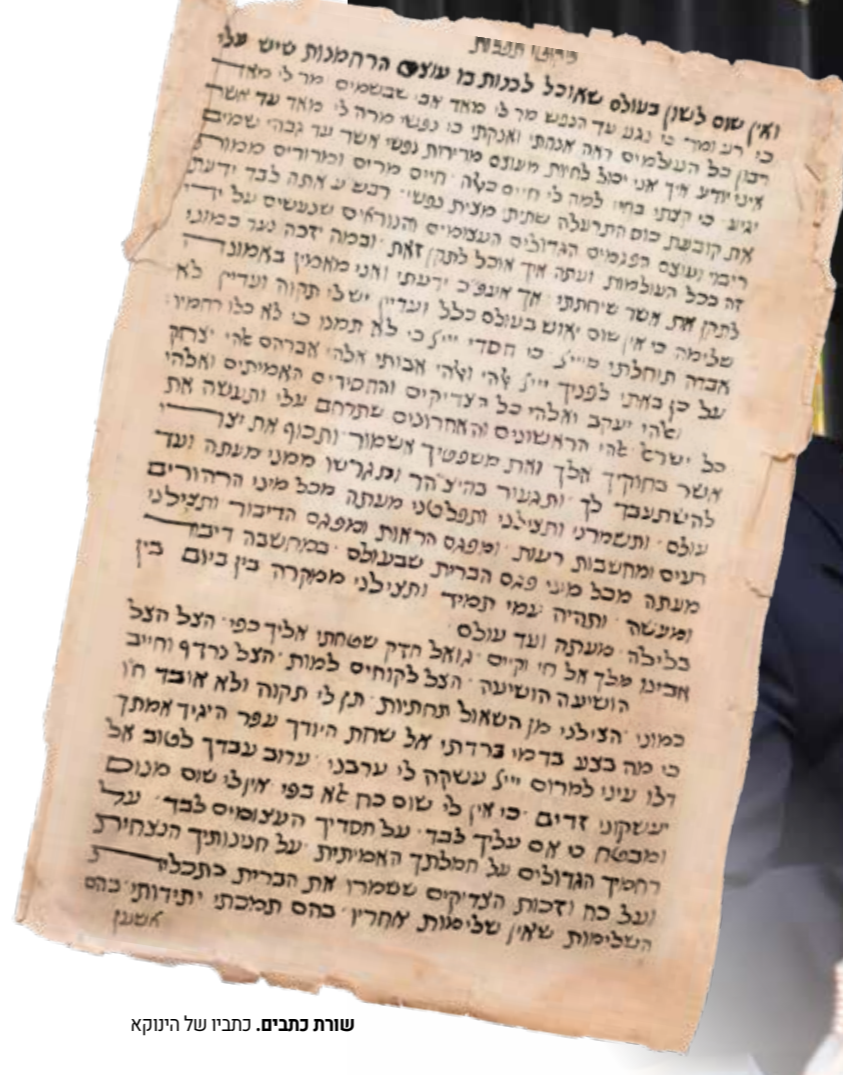 ליקוטי תפלות
ואין שום לשון בעולם שאוכל לכנות בו עוצם הרחמנות שיש עלי
כי רע ומר כי נגע עד הנפש מר לי מאד אבי שבשמים מר לי מאד
רבון כל העולמים ראה אנחתי ואנקתי כי נפשי מרה לי מאד עד אשר
איני יודע איך אני יכול לחיות מעוצם מרירות נפשי אשר עד גבהי שמים
יגיע כי קצתי בחיי למה לי חיים כאלה חיים מרים ומרורים ממות
את קובעת כוס התרעלה שתית מצית נפשי רבש"ע אתה לבד ידעת
ריבוי ועוצם הפגמים הגדולים העצומים והנוראים שנעשים על ידי
זה בכל העולמות ועתה איך אוכל לתקן זאת ובמה יזכה נער כמוני
לתקן את אשר שיחתתי אך אעפ"כ ידעתי ואני מאמין באמונה
שלימה כי אין שום יאוש בעולם כלל ועדיין יש לי תקוה ועדיין לא
אבדה תוחלתי מיי"ל כי חסדי יי"ל כי לא תמנו כי לא כלו רחמיו
על כן באתי לפניך יי"ל אלהי ואלהי אבותי אלהי אברהם אלהי יצחק
ואלהי יעקב ואלהי כל הצדיקים והחסידים האמיתים ואלהי
כל ישראל אלהי הראשונים והאחרונים שתרחם עלי ותעשה את
אשר בחוקיך אלך ואת משפטיך אשמור ותכוף את יצרי
להשתעבד לך ותגעור בהיצה"ר ותגרשו ממני מעתה ועד
עולם ותשמרני ותצילני ותפלטני מעתה מכל מיני הרהורים
רעים ומחשבות רעות ומפגם הראות ומפגם הדיבור ותצילני
מעתה מכל מיני פגם הברית שבעולם במחשבה דיבור
ומעשה ותהיה עמי תמיד ותצילני ממקרה בין ביום בין
בלילה מעתה ועד עולם
אבינו מלך אל חי וקיים גואל חזק שטחתי אליך כפי הצל הצל
הושיעה הושיעה הצל לקוחים למות הצל נרדף וחייב
כמוני הצילני מן השאול תחתיות תן לי תקוה ולא אובד ח"ו
כי מה בצע בדמי ברדתי אל שחת היודך עפר היגיד אמתך
דלו עיני למרום יי"ל עשקה לי ערבני ערוב עבדך לטוב אל
יעשקוני זדים כי אין לי שום כח לא בפי אין לי שום מנוס
ומבטח כי אם עליך לבד על חסדיך העצומים לבד על
רחמיך הגדולים על חמלתך האמיתית על חנינותיך הנצחיות
ועל כח וזכות הצדיקים ששמרו את הברית בתכלית
השלימות שאין שלימות אחריו בהם תמכתי יתידותי בהם
אשען
שורת כתבים. כתביו של הינוקא